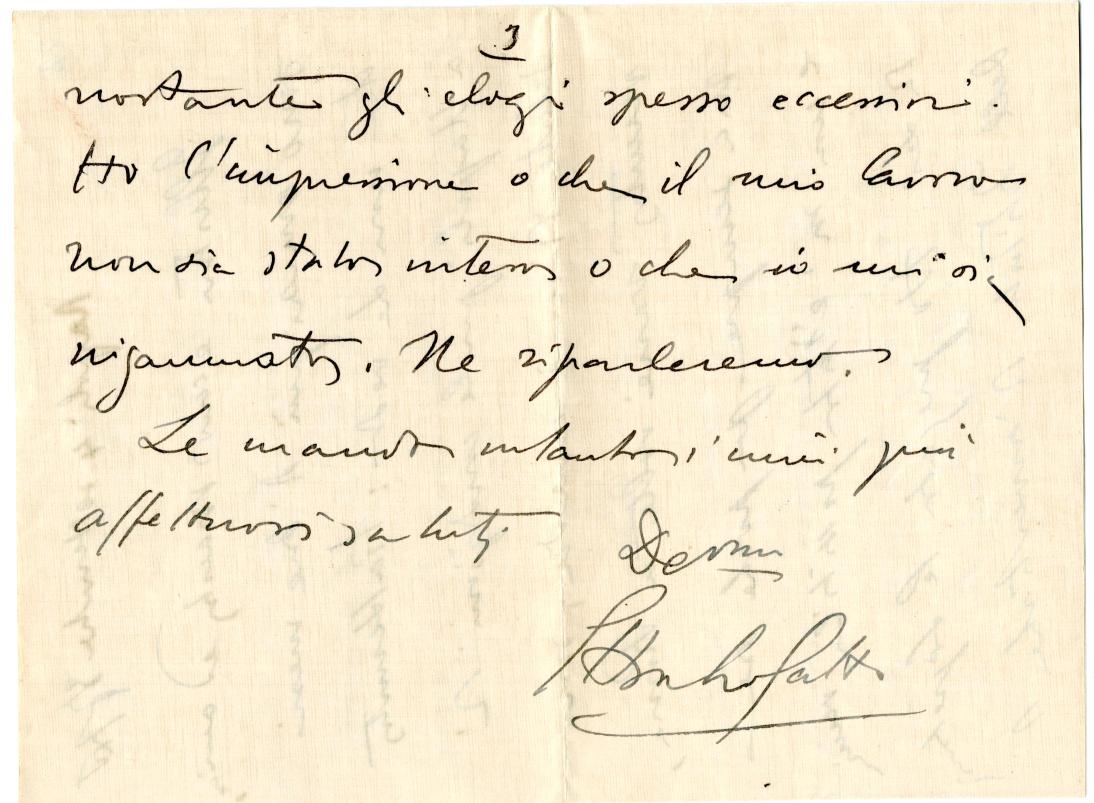 3
nostante gli elogi spesso eccessivi.
Ho l'impressione o che il mio lavoro
non sia stato inteso o che io mi sia
ingannato. Ne riparleremo.
Le mando intanto i miei più
affettuosi saluti
Devmo
Salvatore Gatto